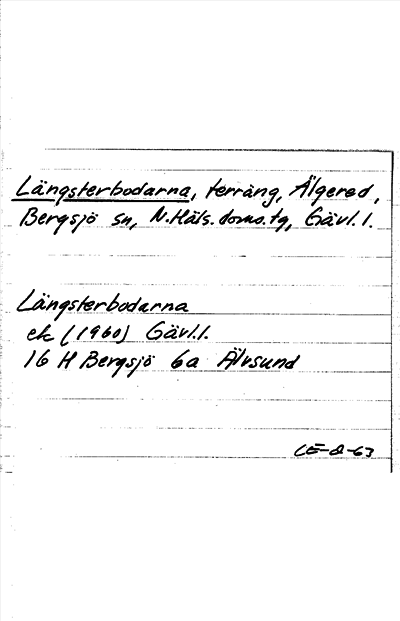 Längsterbodarna, terräng, Älgered,
Bergsjö sn, N. Häls. doms. tg, Gävl. l.
Längsterbodarna
ek (1960) Gävl. l.
16 H Bergsjö 6a Älvsund